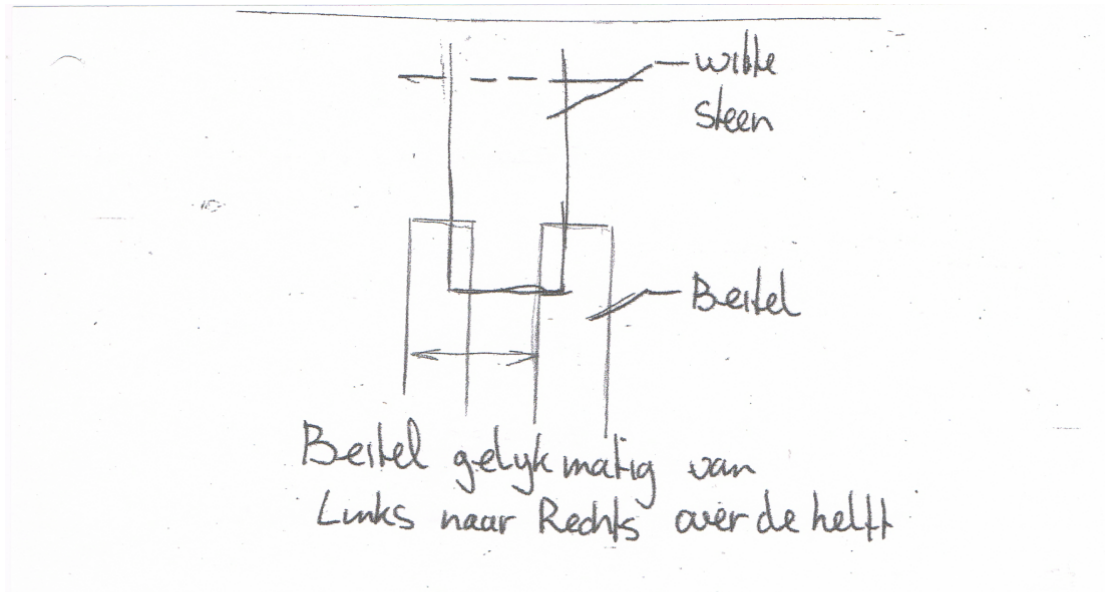 witte
steen
Beitel
Beitel gelykmatig van
Links naar Rechts over de helft